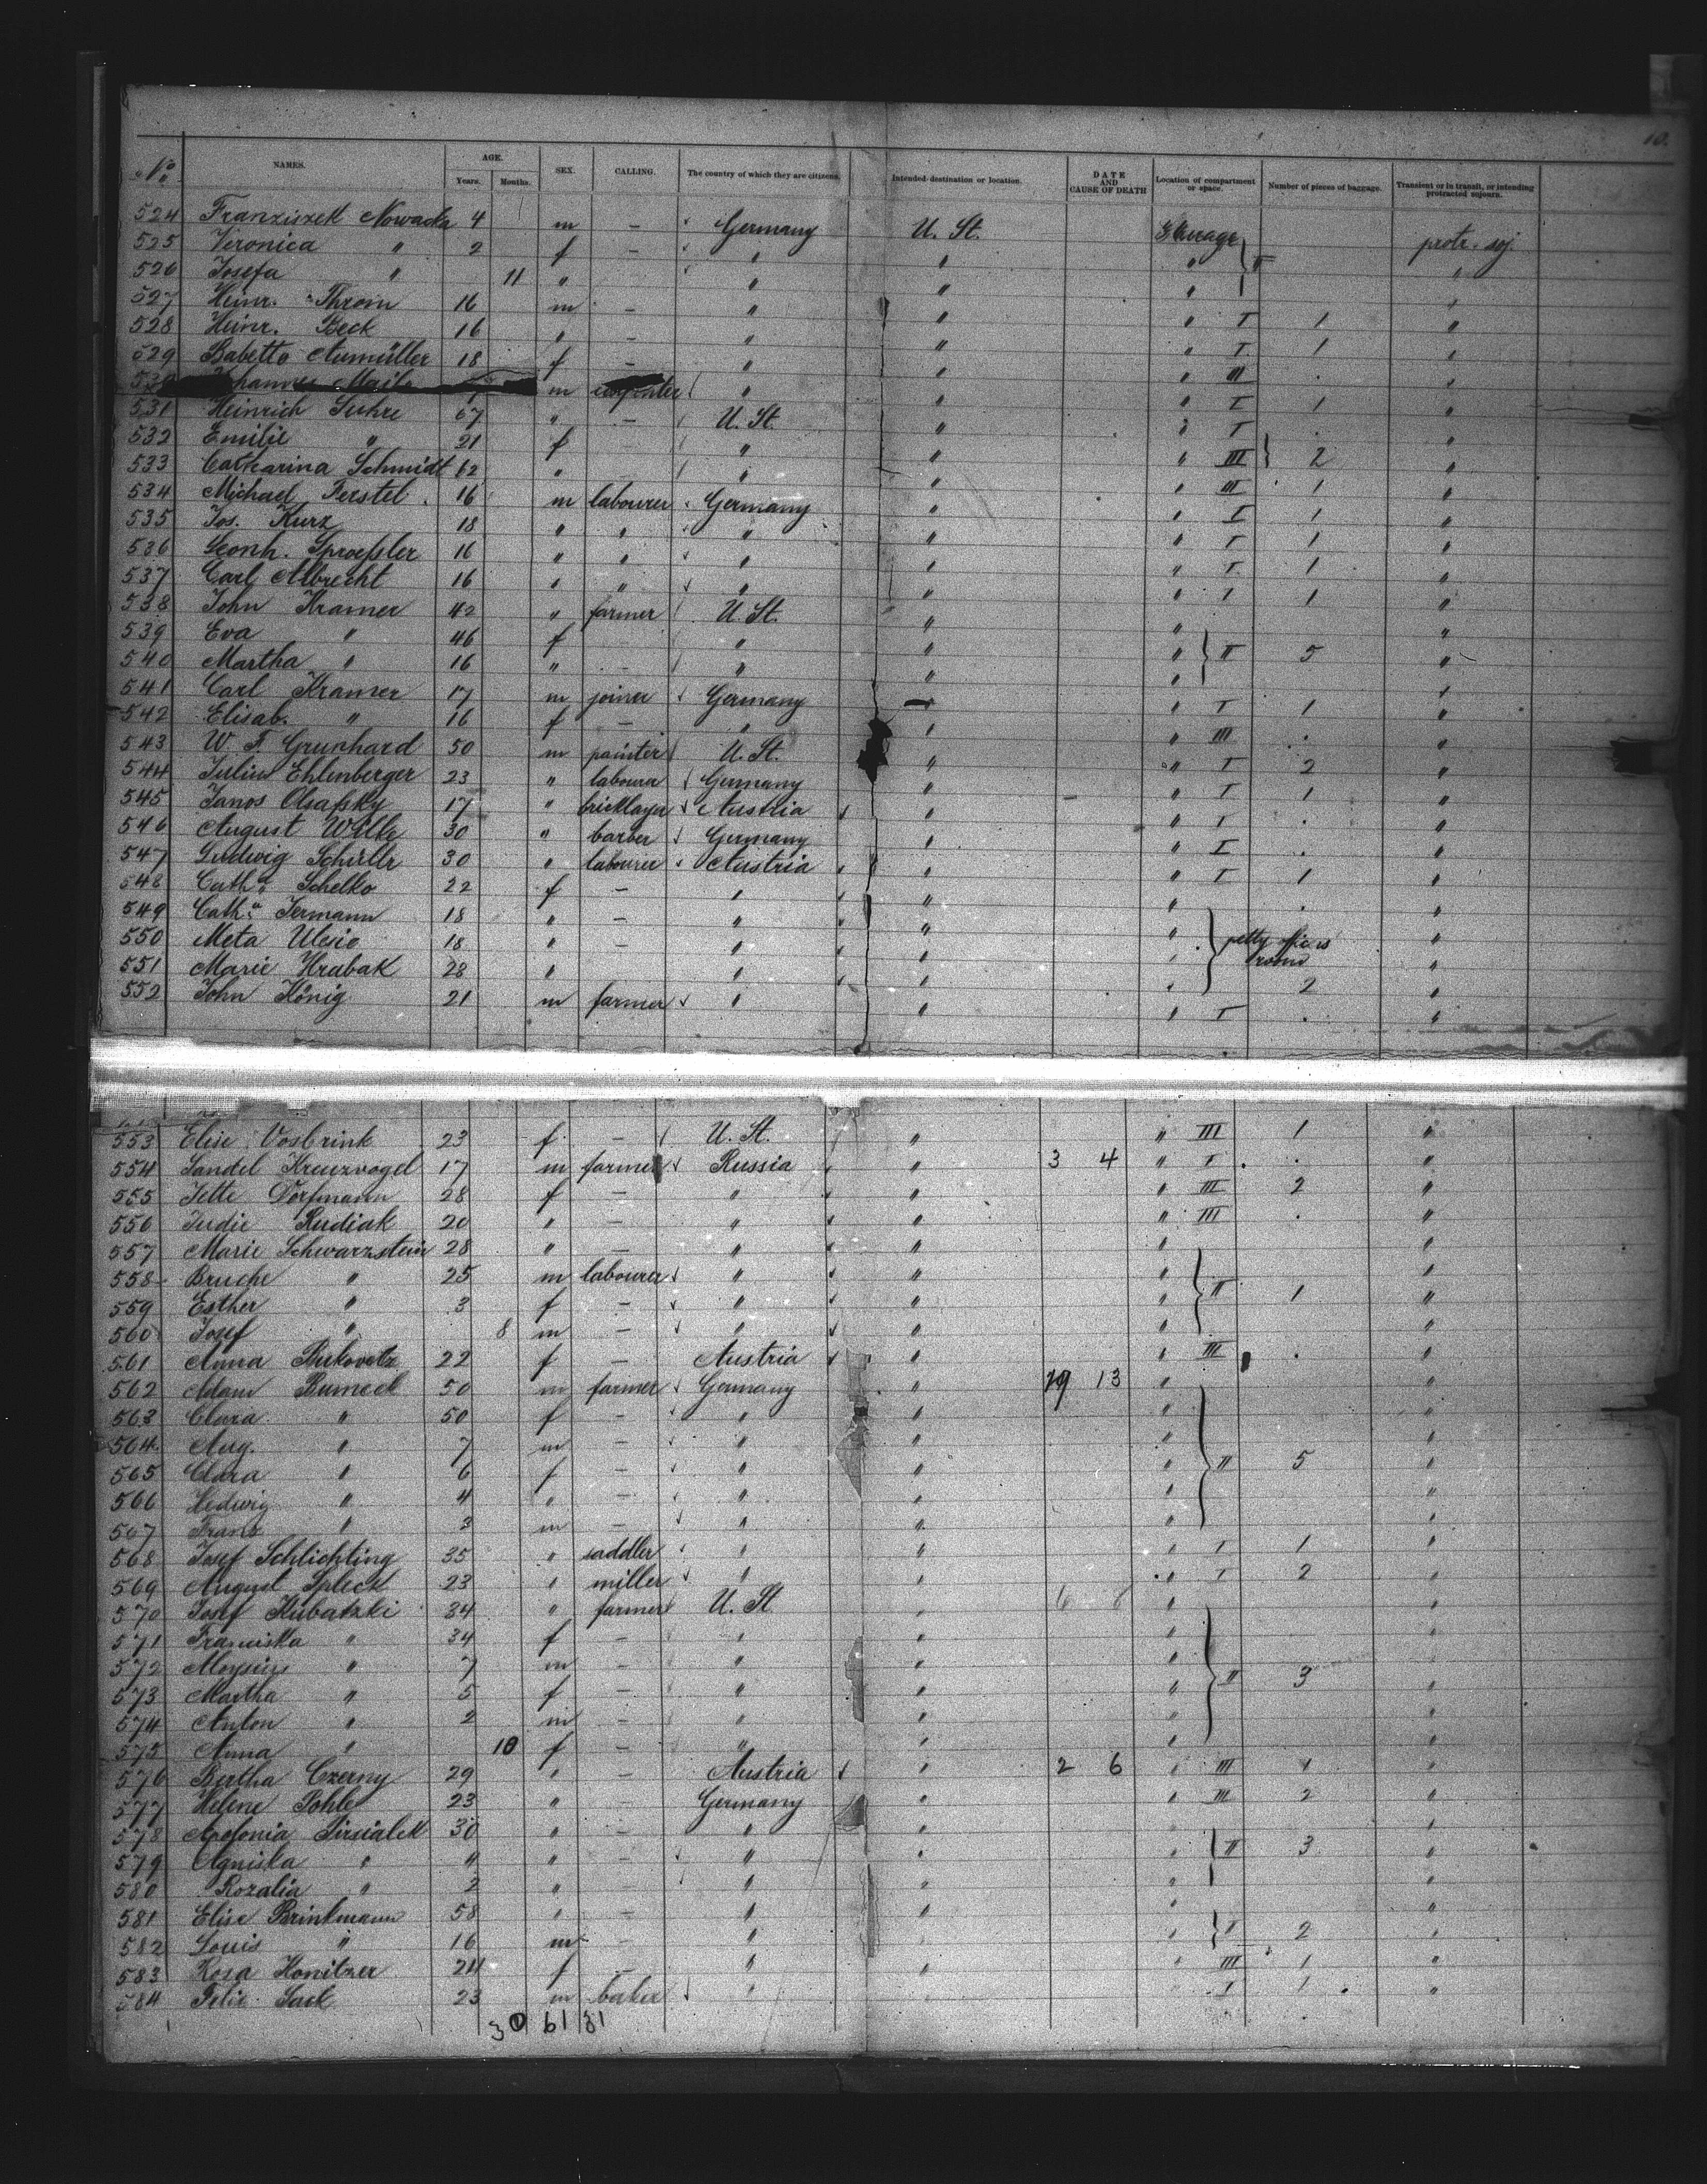 10.
No. NAMES. AGE. Years. Months. SEX. CALLING. The country of which they are citizens. Intended destination or location. DATE AND CAUSE OF DEATH Location of compartment or space. Number of pieces of baggage. Transient or in transit, or intending protracted sojourn.
524 Franziszek Nowacka 4 m - Germany U. St. Steerage protr. soj.
525 Veronica " 2 f - " " " II "
526 Josefa " 11 " " " " "
527 Heinr. Throm 16 m - " " " I 1 "
528 Heinr. Beck 16 " - " " " I 1 "
529 Babette Aumüller 18 f - " " " III . "
530 Johannes m carpenter " " " I 1 "
531 Heinrich Suhre 67 " - U. St. " " I . "
532 Emilie " 21 f - " " " III 2 "
533 Catharina Schmidt 62 " - " " " III 1 "
534 Michael Ferstel 16 m labourer Germany " " I 1 "
535 Jos. Kurz 18 " " " " " I 1 "
536 Leonh. Sproessler 16 " " " " " I 1 "
537 Carl Albrecht 16 " " " " " I 1 "
538 John Kramer 42 " farmer U. St. " " "
539 Eva " 46 f - " " " II 5 "
540 Martha " 16 " - " " " "
541 Carl Kramer 17 m joiner Germany " " I 1 "
542 Elisab. " 16 f - " " " III . "
543 W. F. Grunhard 50 m painter U. St. " " I 2 "
544 Julius Ehlenberger 23 " labourer Germany " " I 1 "
545 Janos Olsafsky 17 " bricklayer Austria " " I . "
546 August Wilke 30 " barber Germany " " I . "
547 Ludwig 30 " labourer Austria " " I 1 "
548 Cath. Schelko 22 f - " " " . "
549 Cath. Jermann 18 " - " " " petty officers "
550 Meta Ulesic 18 " - " " " room "
551 Marie Hrabak 28 " " " " 2 "
552 John König 21 m farmer " " " I . "
553 Elise Vosbrink 23 f - U. St. " " III 1 "
554 Sandel Kreuzvogel 17 m farmer Russia " 3 4 " I . "
555 Jette Dorfmann 28 f - " " " III 2 "
556 Judie Rudiak 20 " - " " " III . "
557 Marie Schwarzstein 28 " - " " " "
558 Bruche " 25 m labourer " " " "
559 Esther " 3 f - " " " II 1 "
560 Josef " 8 m - " " " "
561 Anna Bukovetz 22 f - Austria " " III . "
562 Adam Bumeck 50 m farmer Germany " 19 13 " "
563 Clara " 50 f - " " " "
564 Aug. " 7 m - " " " "
565 Clara " 6 f - " " " II 5 "
566 Hedwig " 4 " - " " " "
567 Franz " 3 m - " " " "
568 Josef Schlichting 35 " saddler " " " I 1 "
569 August Spleck 23 " miller " " " I 2 "
570 Josef Kubatzki 34 " farmer U. St. " 6 8 " "
571 Franciska " 34 f - " " " "
572 Aloysius " 7 m - " " " "
573 Martha " 5 f - " " " II 3 "
574 Anton " 2 m - " " " "
575 Anna " 10 f - " " " "
576 Bertha Czerny 29 " - Austria " 2 6 " III 1 "
577 Helene Pohle 23 " - Germany " " III 2 "
578 Apolonia Sirsialek 30 " - " " " "
579 Agniska " " - " " " II 3 "
580 Rozalia " 2 " - " " " "
581 Elise Brinkmann 58 " - " " " "
582 Louis " 16 m - " " I 2 "
583 Rosa Honitzer 24 f - " " " III 1 "
584 Felix Sack 23 m baker " " I 1 "
30 61 31